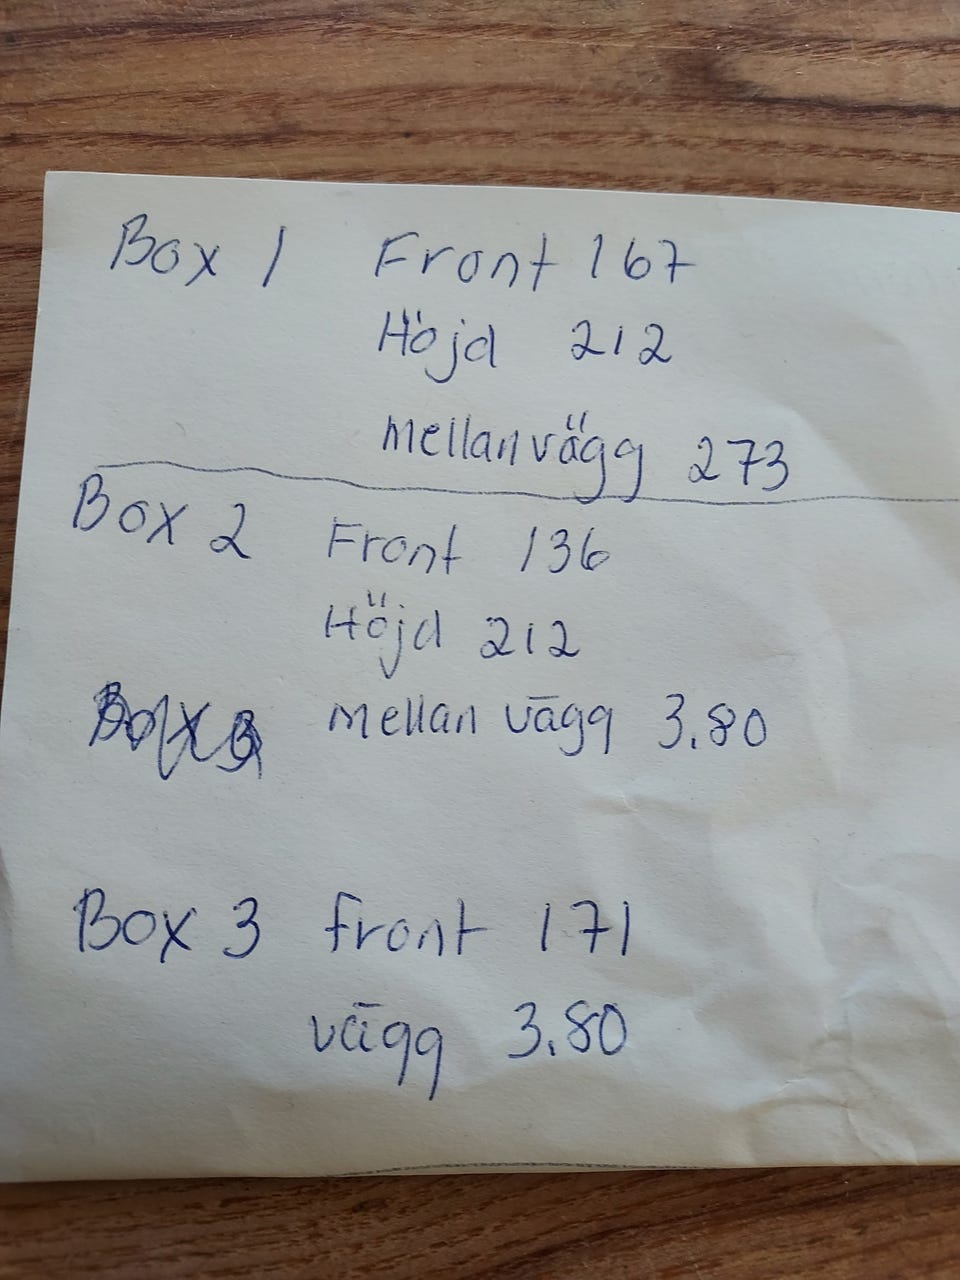 Box 1 Front 167
Höjd 212
mellanvägg 273
Box 2 Front 136
Höjd 212
mellan vägg 3.80
Box 3 front 171
vägg 3.80